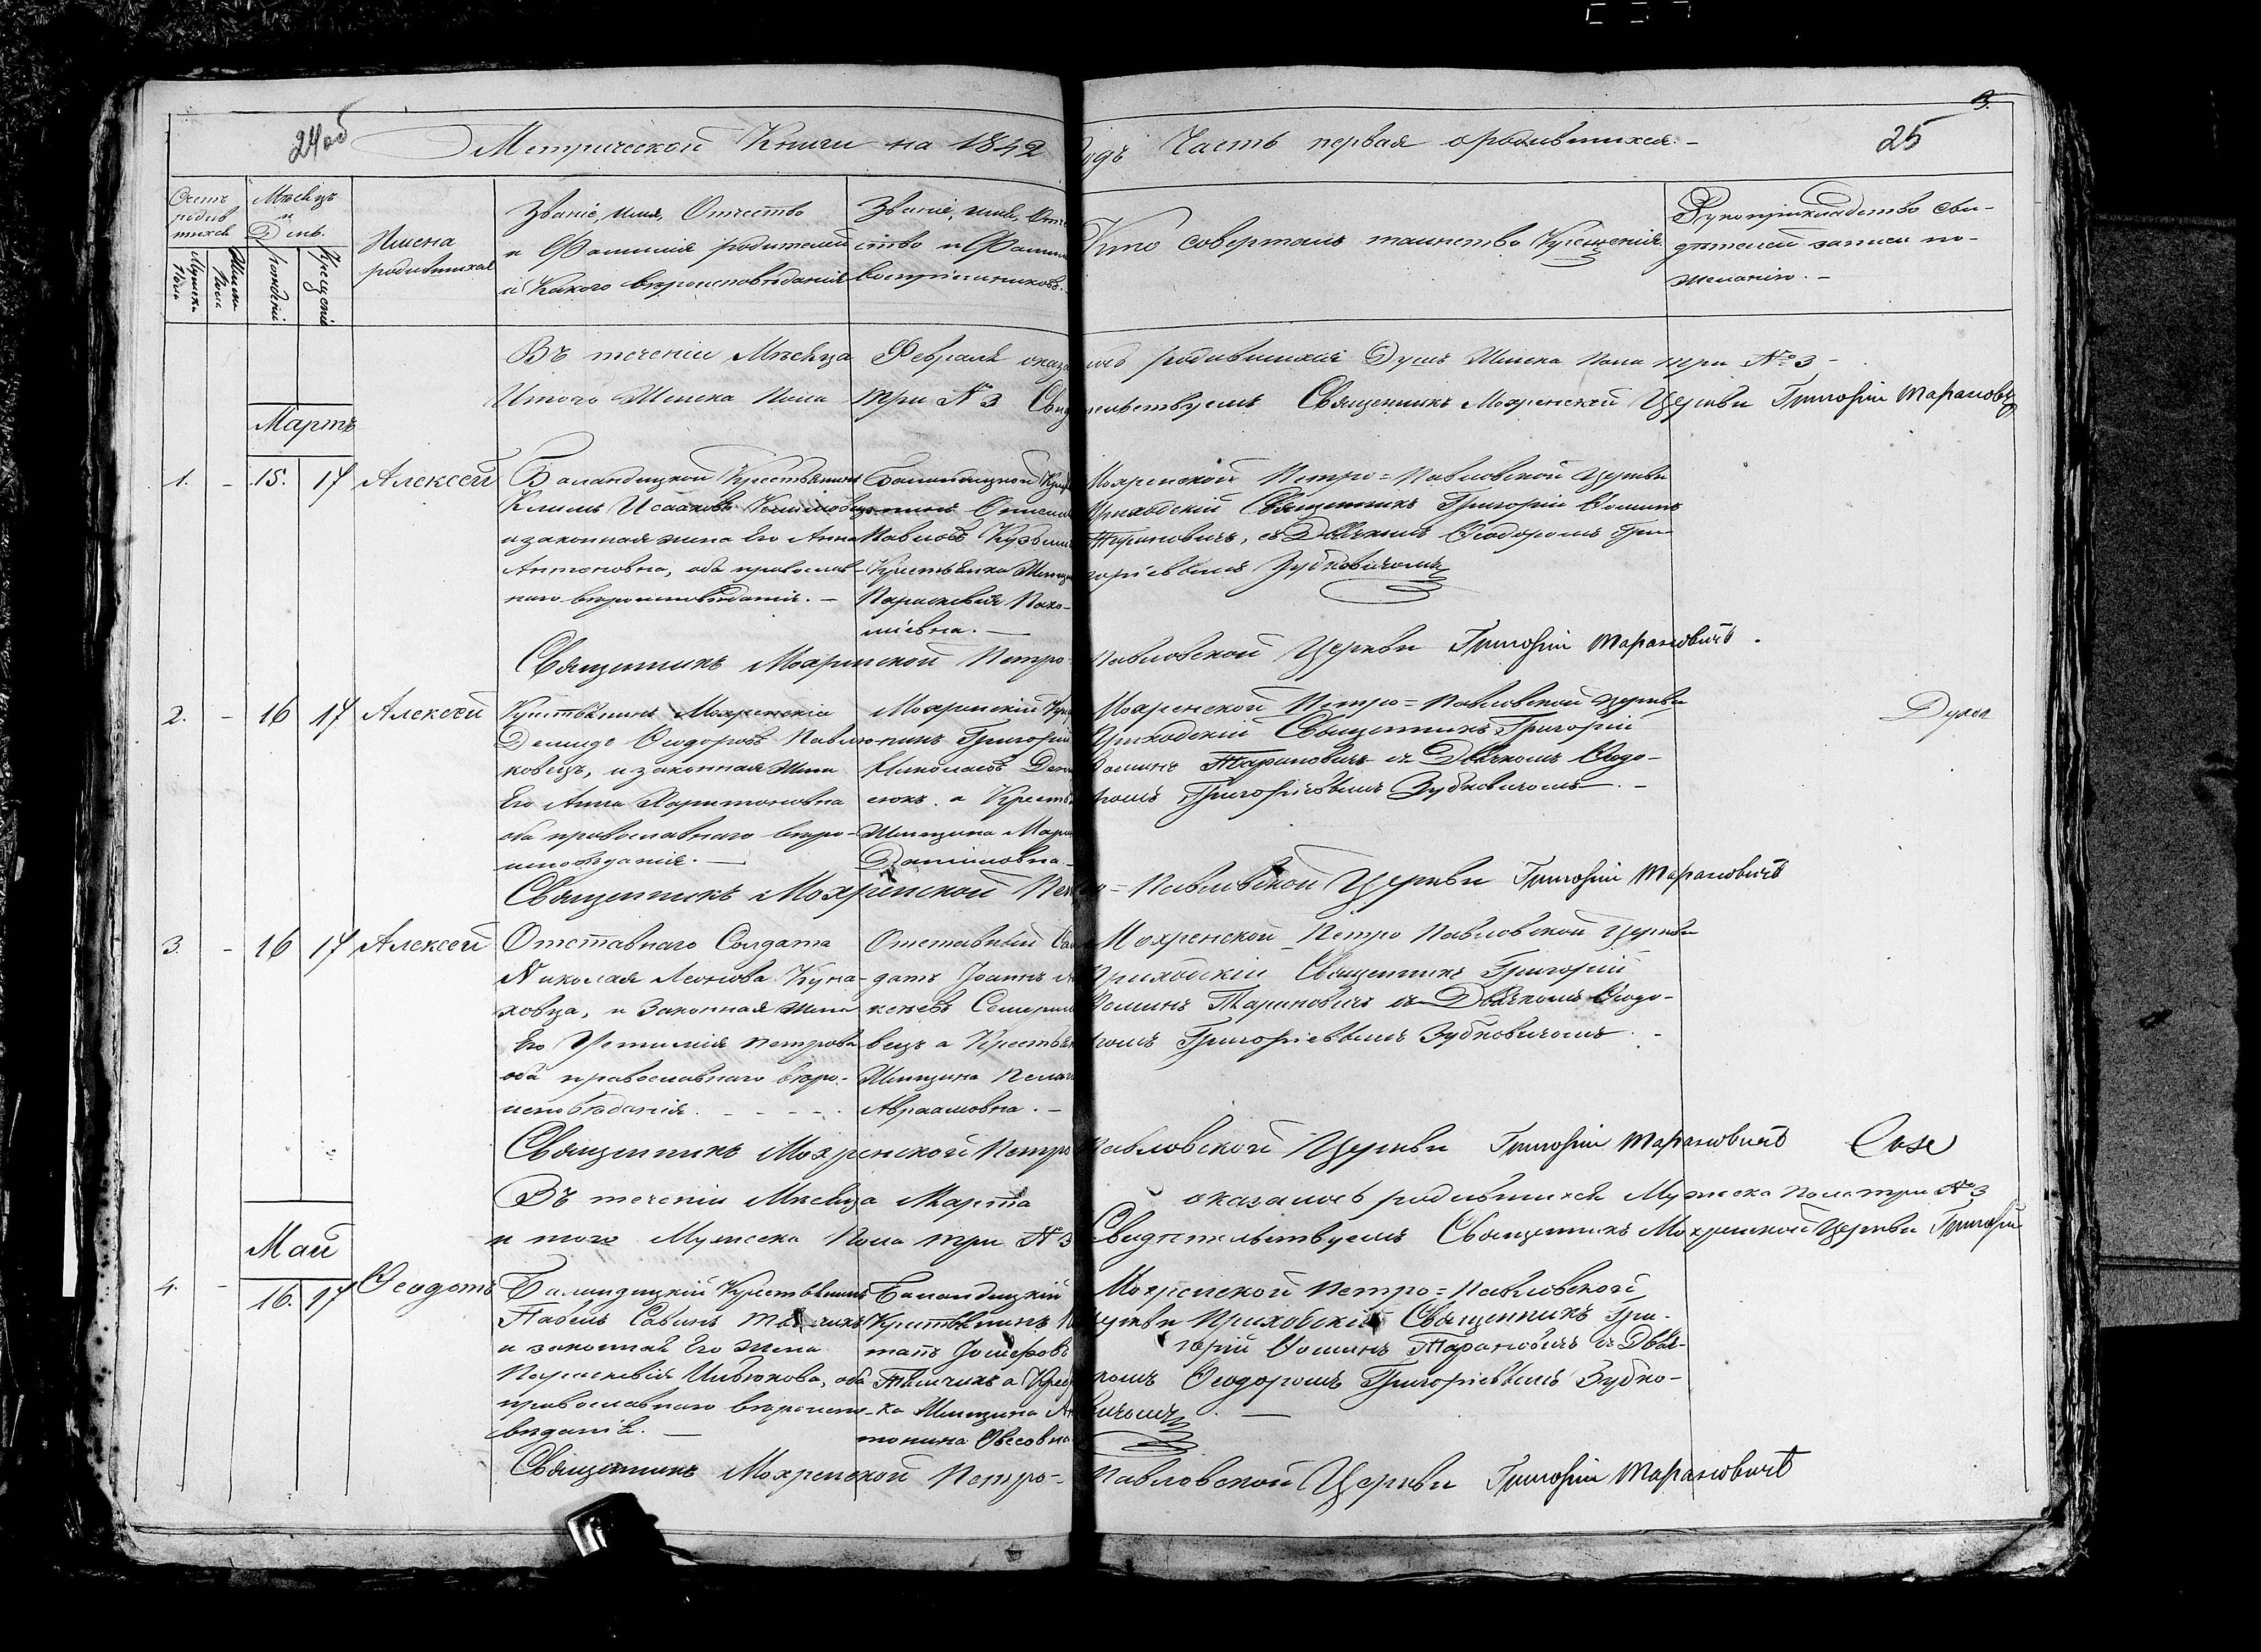 24об
Метрической Книги на 1842 Годъ Часть первая о родившихся. -
25
3.
Счетъ родив шихся
Мѣсяцъ и День.
Имена родившихся
Званіе, имя, Отчество и Фамилія родителей и Какого вѣроисповѣданія
Званіе, имя, Отче ство и Фамил воспріемниковъ. -
Кто совершалъ таинство Крещенія.
Рукоприкладство сви- дѣтелей записи по- желанію. -
Мужеска пола
Женска пола
рожденія
Крещенія
Въ теченіи Мѣсяца Февраля оказалось родившихся Душъ Женска пола три №3 -
Итого Женска Пола три №3 Свидѣтельствуемъ Священникъ Мохренской Церкви Григорій Тарановичъ
Мартъ
1. - 15. 17 Алексей
Баландицкой Крестьянинъ
Климъ Исааковъ
и законная жена Его Анна
Антоновна, оба православ-
наго вѣроисповѣданія. -
Баландицкой
Павловъ
Крестьянка
Параскевія Пахо-
міевна. -
Мохренской Петро=Павловской Церкви
Приходскій Священникъ Григорій Фоминъ
Тарановичъ, съ Дьячкомъ Феодоромъ Гри-
горіевымъ Зубковичомъ
Священникъ Мохренской Петро-Павловской Церкви Григорій Тарановичъ.
2. - 16 17 Алексей
Крестьянинъ Мохренскій
Демидъ Феодоровъ Павлю-
ковецъ, и законная жена
Его Анна Харитоновна
оба православнаго вѣро-
исповѣданія. -
Мохренскій
нинъ Григорій
Николаевъ
сюкъ. а
Женщина
Даниловна -
Мохренской Петро=Павловской Церкви
Приходскій Священникъ Григорій
Фоминъ Тарановичъ съ Дьячкомъ Феодо-
ромъ Григоріевымъ Зубковичомъ. -
Духа
Священникъ Мохренской Петро=Павловской Церкви Григорій Тарановичъ
3. - 16 17 Алексей
Отставнаго Солдата
Николая Леонова Куна-
ховца, и Законная жена
Его Устинія Петрова
оба православнаго вѣро-
исповѣданія. - - - -
Отставный Сол
датъ Іоаннъ
вецъ а
Женщина
Авраамовна. -
Мохренской Петро Павловской Церкви
Приходскій Священникъ Григорій
Фоминъ Тарановичъ съ Дьячкомъ Феодо-
ромъ Григоріевымъ Зубковичомъ. -
Священникъ Мохренской Петро Павловской Церкви Григорій Тарановичъ
Въ теченіи Мѣсяца Марта оказалось родившихся Мужеска пола три №3
итого Мужеска Пола три №3 Свидѣтельствуемъ Священникъ Мохренской Церкви Григорій
Май
4. - 16. 17 Феодотъ
Баландицкій Крестьянинъ
Павелъ Савинъ
и законная Его жена
Параскевія, оба
православнаго вѣроиспо-
вѣданія. -
Баландицкій
Крестьянинъ
Іосифовъ
а
ка Женщина
Мохренской Петро=Павловской
Церкви Приходскій Священникъ Гри-
горій Фоминъ Тарановичъ съ Дьяч-
комъ Феодоромъ Григоріевымъ Зубко-
вичомъ. -
Священникъ Мохренской Петро-Павловской Церкви Григорій Тарановичъ